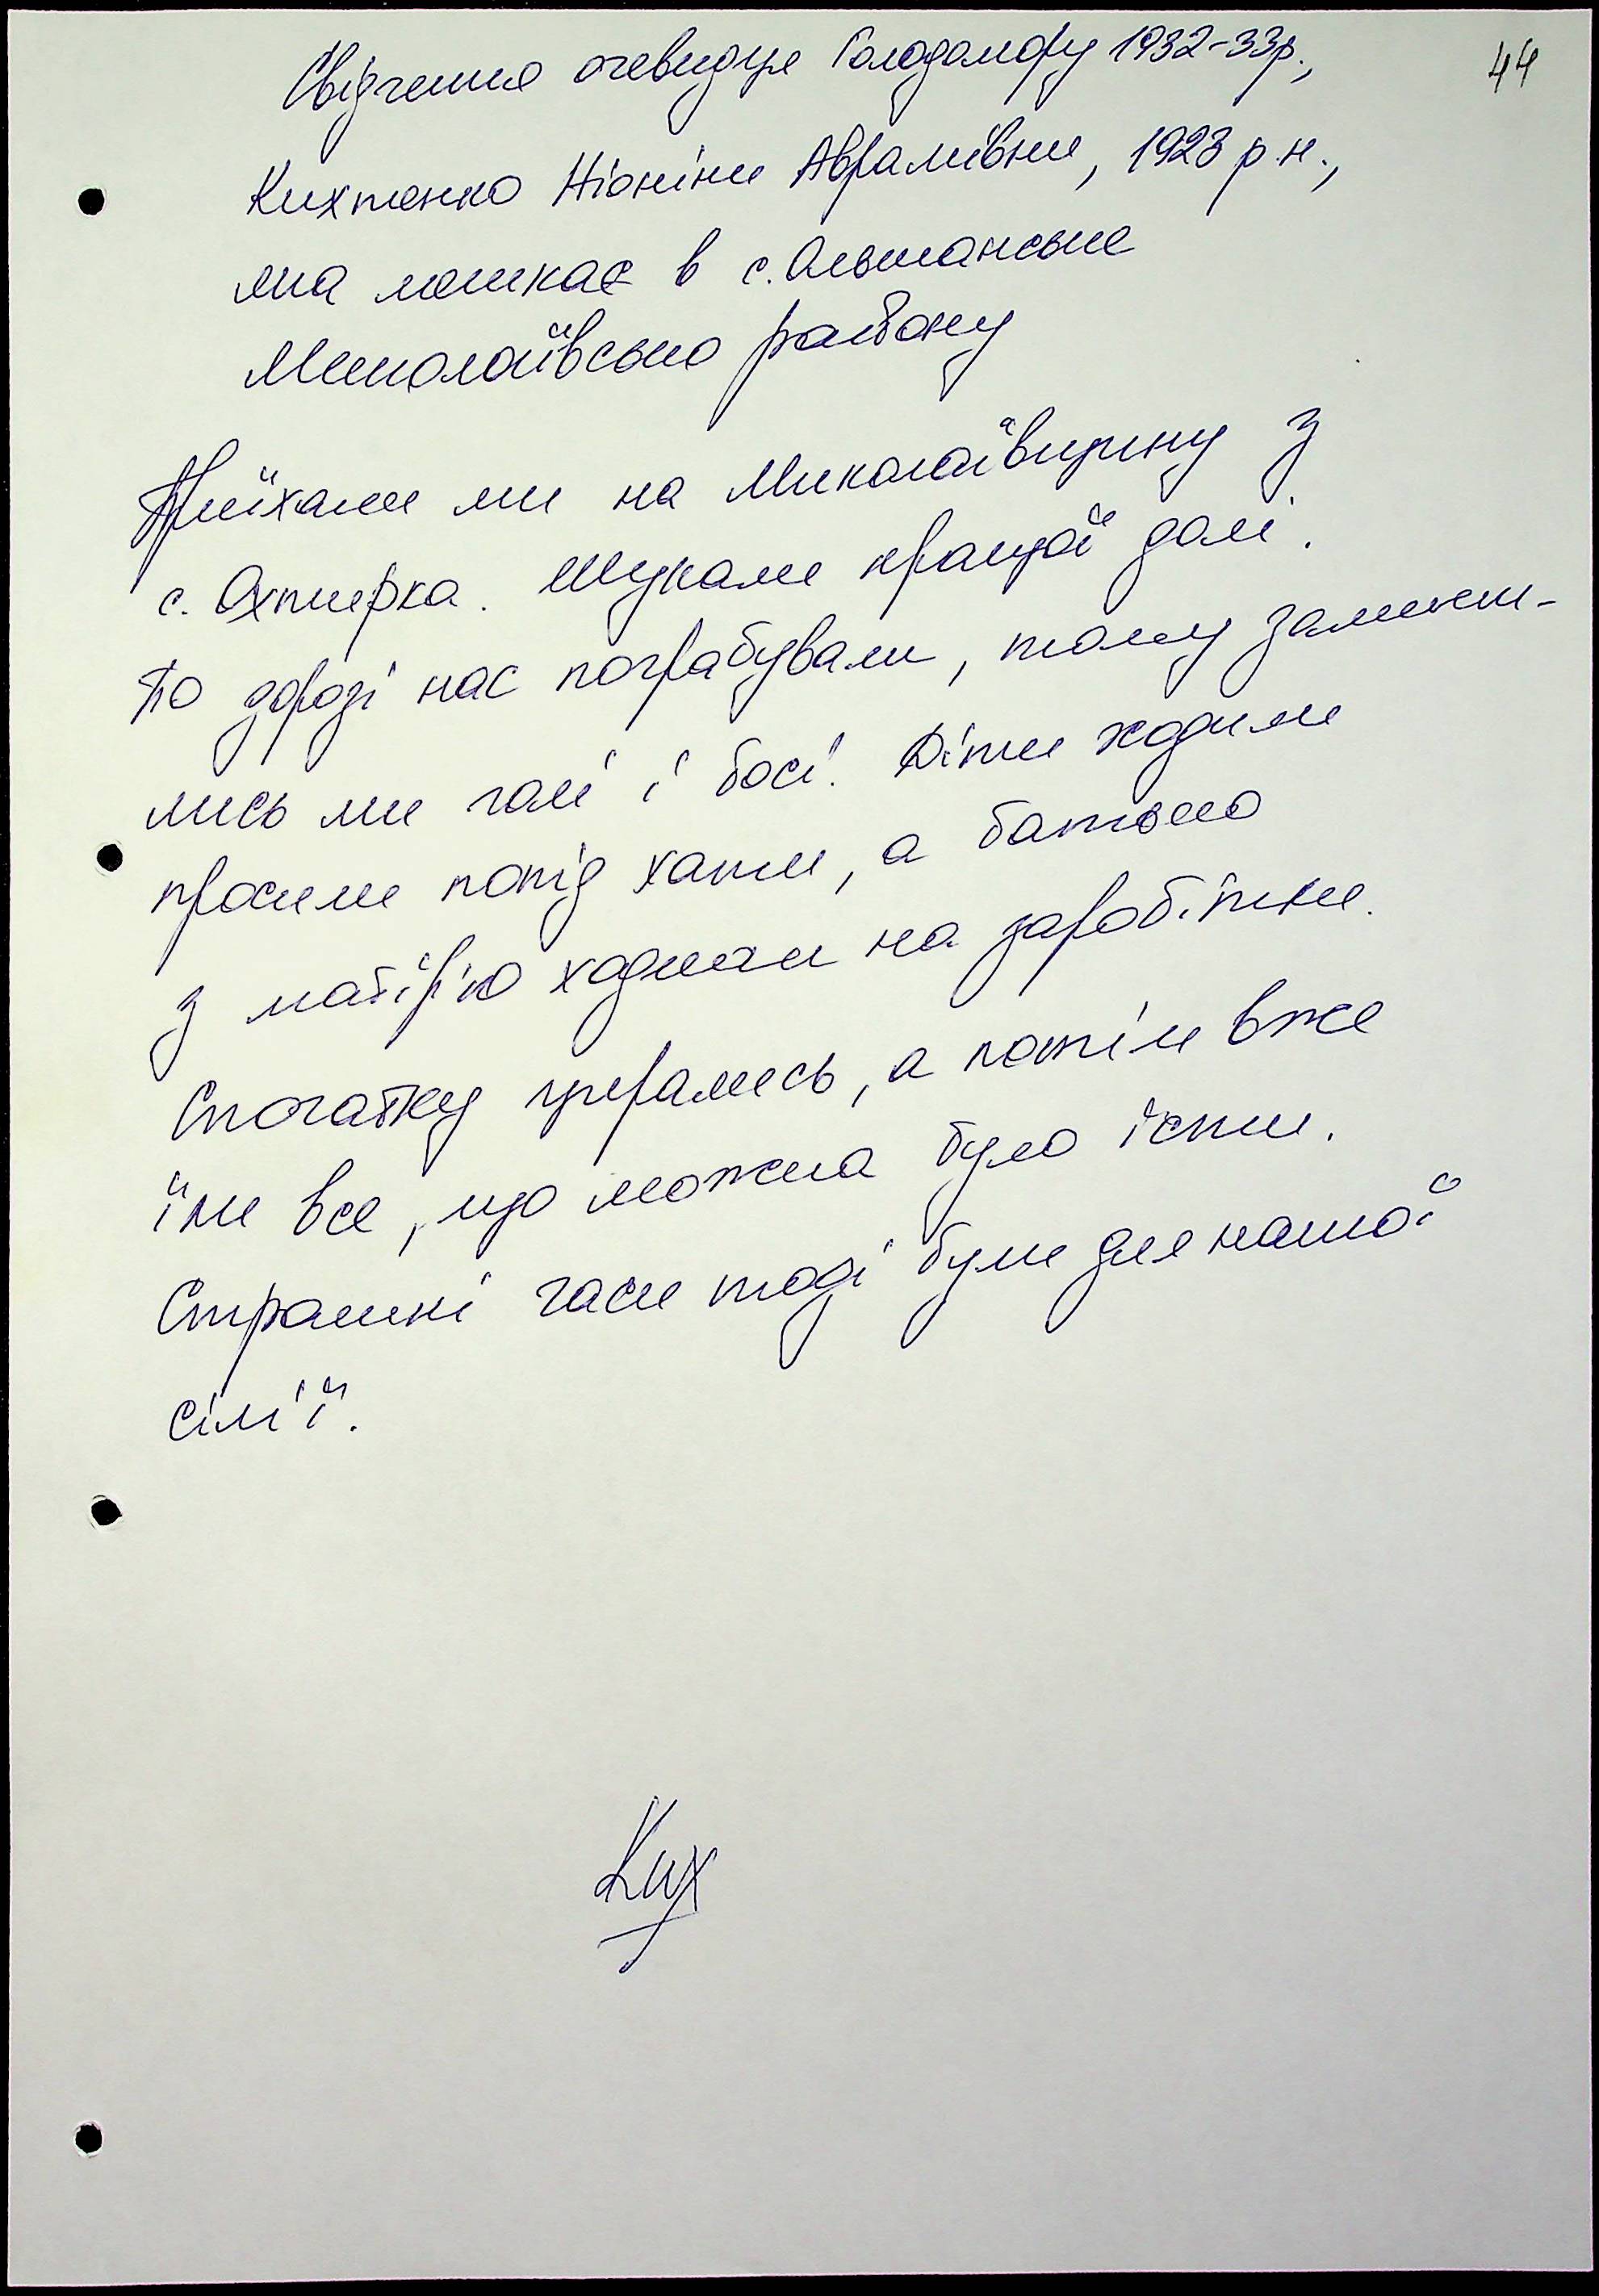 44
Свідчення очевидця Голодомору 1932-33р.,
Кихтенко Ніоніни Аврамівни, 1923 р.н.,
яка мешкає в с. Ольшанське
Миколаївсько району
Приїхали ми на Миколаївщину з
с. Охтирка. Шукали кращої долі.
По дорозі нас пограбували, тому залиши-
лись ми голі і босі. Діти ходили
просили попід хати, а батько
з матір'ю ходили на заробітки.
Спочатку трималесь, а потім вже
їли все, що можна було їсти.
Страшні часи тоді були для нашої
сім'ї.
Ких